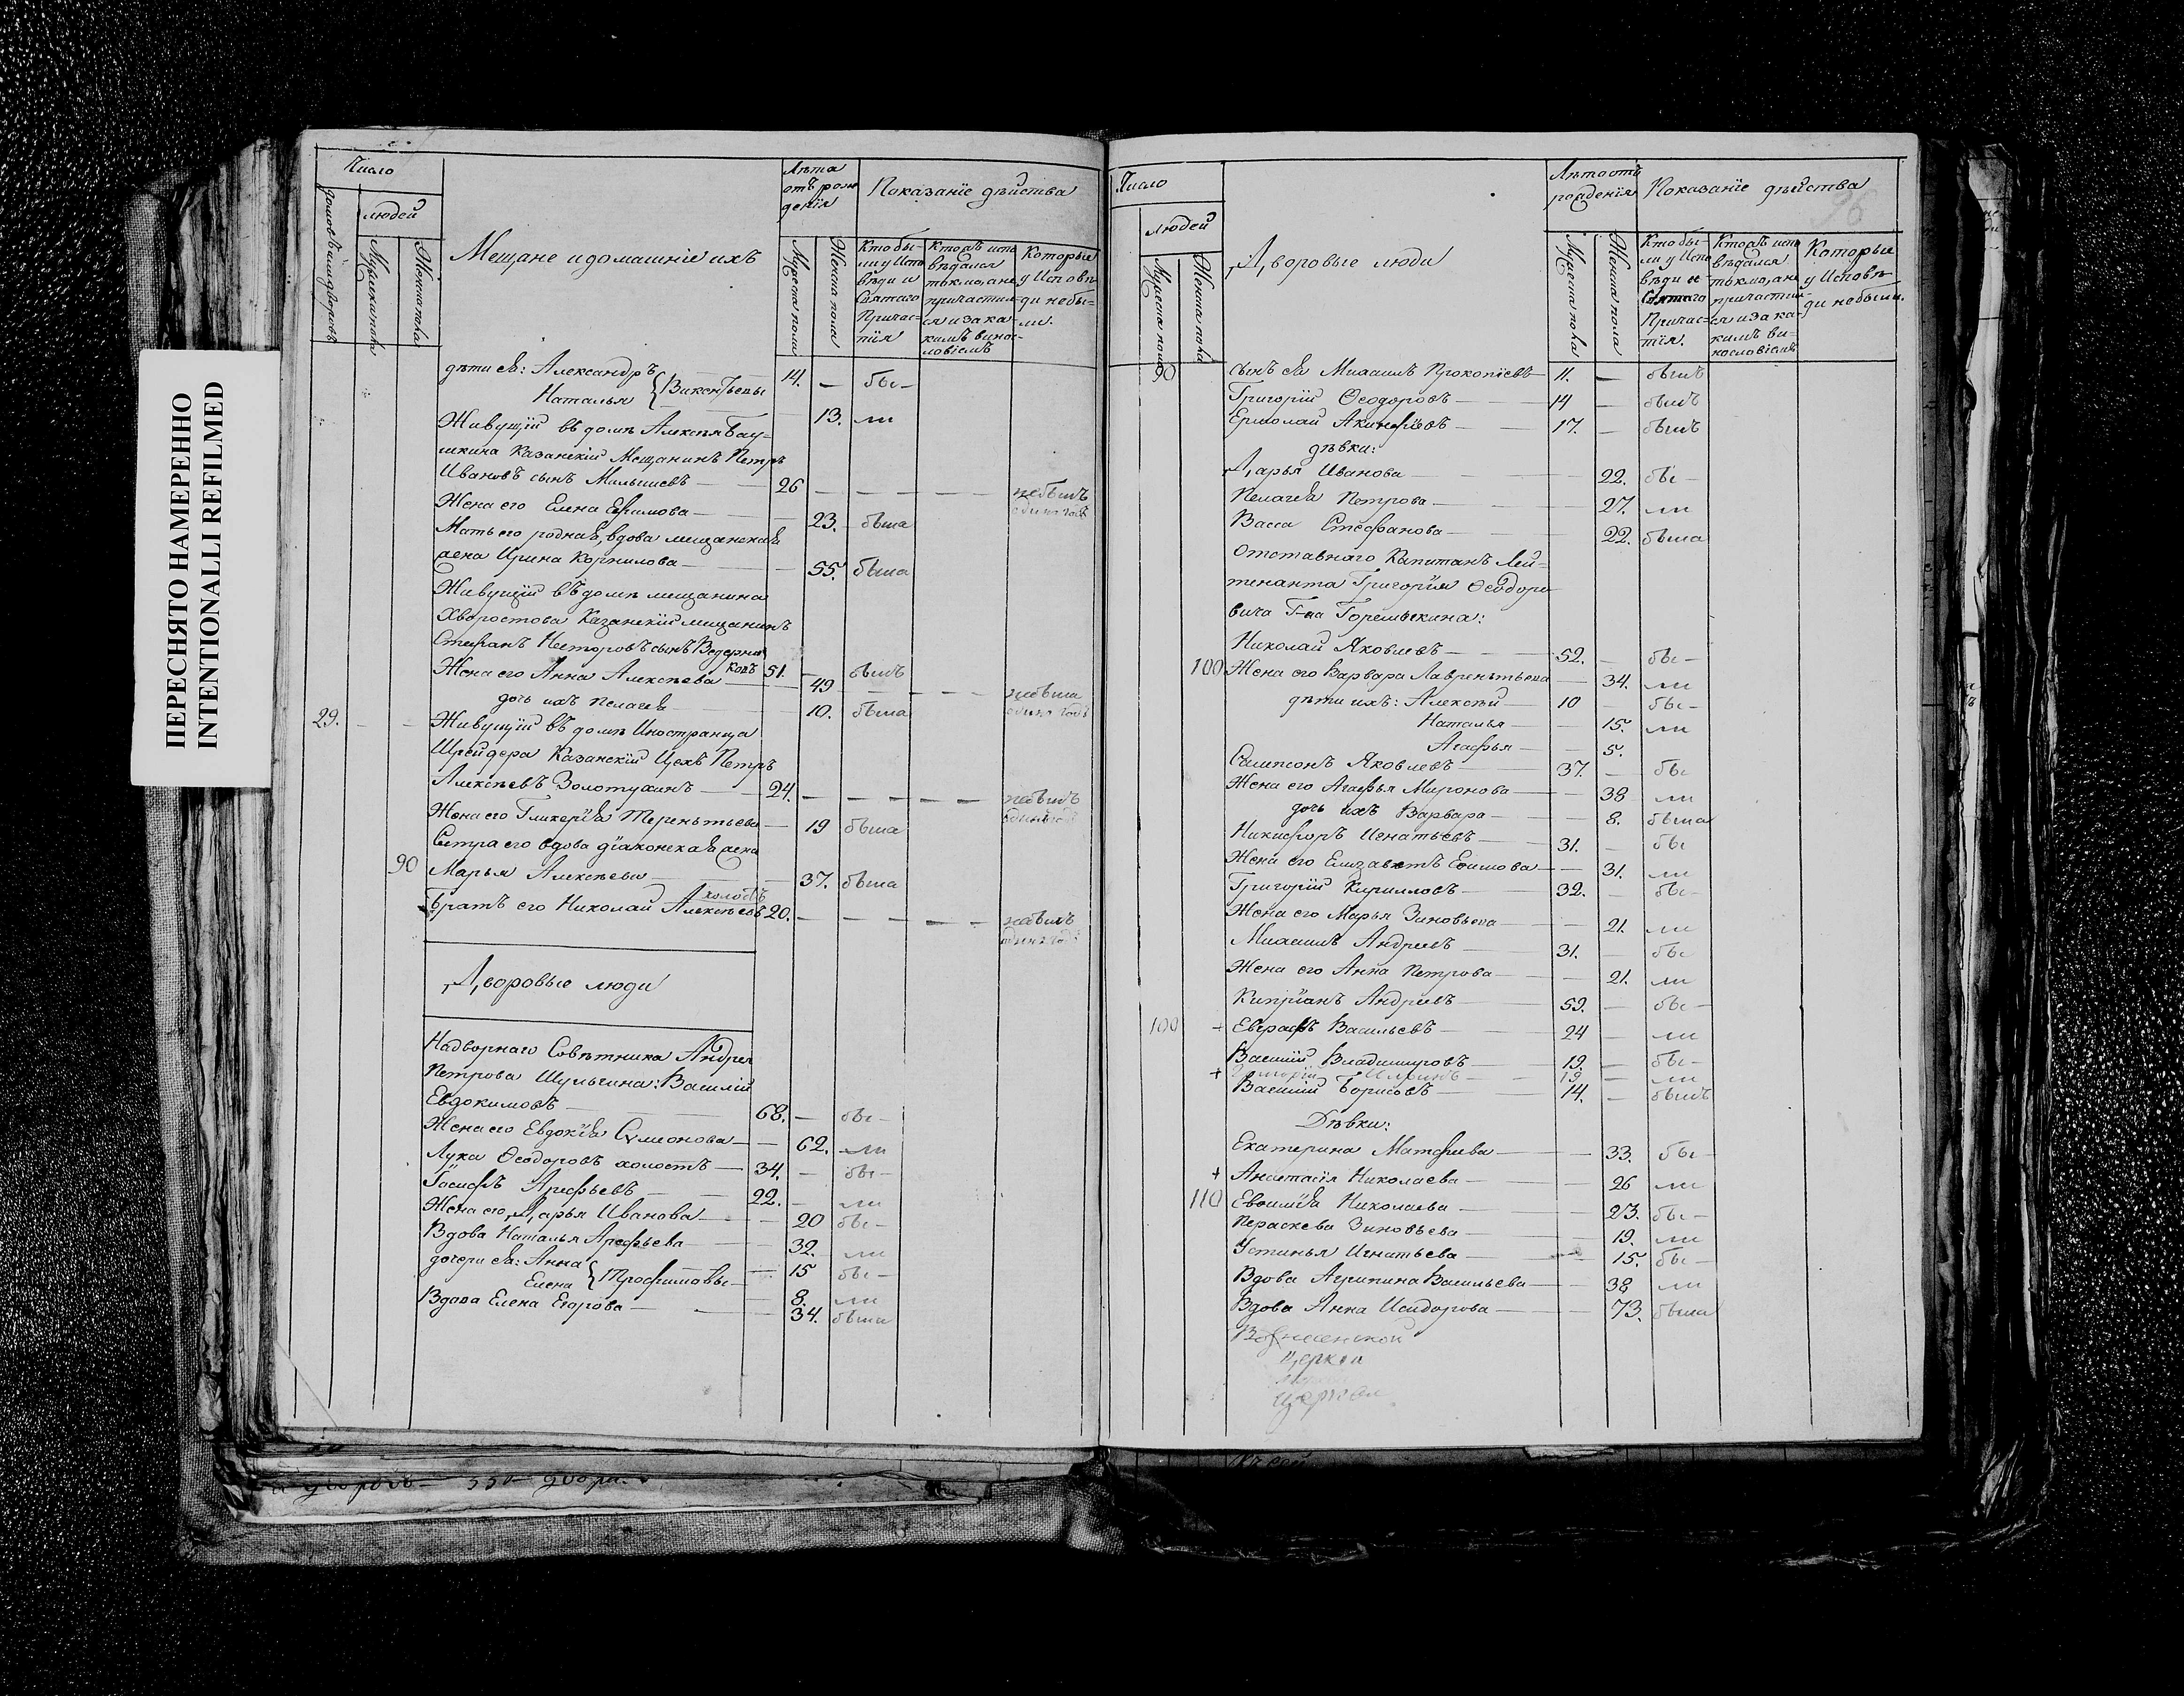 ПЕРЕСНЯТО НАМЕРЕННО
INTENTIONALLI REFILMED
Число
людей
Мужеска пола
Женска пола
Мещане и домашніе ихъ
Лѣта
отъ рож
денія
Мужеска пола
Женска пола
Показаніе дѣйства
Кто бы-
ли у Испо
вѣди и
Святаго
Причас-
тія
Кто исп
вѣдался
токмо, а не
причастил-
ся и за ка-
кимъ вино-
словіемъ
Которые
у Исповѣ
ди небы-
ли.
дѣти ея: Александръ 14. — бы-
Наталья Викентьевы 13. ли
Живущій въ домѣ Алексѣя Бау-
шкина Казанскій Мещанинъ Петръ
Ивановъ сынъ Малышевъ — 26 — небылъ
Жена его Елена Ефимова — 23. была
Мать его родная, вдова мещанская
жена Ирина Корнилова — 55. была
Живущій въ домѣ мещанина
Хворостова Казанскій мещанинъ
Стефанъ Несторовъ сынъ Ведерни
ковъ 51. — былъ
Жена его Анна Алексѣева — 49 — небыла
дочь ихъ Пелагея — 10. была одинъ годъ
29. Живущій въ домѣ Иностранца
Шрейдера Казанскій Цехъ Петръ
Алексѣевъ Золотухинъ — 24. — небылъ
Жена его Гликерія Терентьева — 19 была
Сестра его вдова діаконская жена
90 Марья Алексѣева — 37. была
холостъ
Братъ его Николай Алексѣевъ 20. — небылъ
Дворовые люди
Надворнаго Совѣтника Андрея
Петрова Шульгина: Василій
Евдокимовъ — 68. — бы-
Жена его Евдокія Сумеонова — 62. ли
Лука Ѳеодоровъ холостъ — 34. — бы-
Іосифъ Арефьевъ — 22. — ли
Жена его Дарья Иванова — 20 бы-
Вдова Наталья Арефьева — 32. ли
дочери ея: Анна — 15 бы-
Елена Трофимовы — 8. ли
Вдова Елена Егорова — 34. была
Число
людей
Мужеска пола
Женска пола
Дворовые люди
Лѣта отъ
рожденія
Мужеска пола
Женска пола
Показаніе дѣйства
96
Кто бы-
ли у Испо
вѣди и
Святаго
Причас-
тія.
Кто исп
вѣдался
токмо, а не
причастил-
ся и за ка-
кимъ ви-
нословіемъ
Которые
у Исповѣ
ди небыли.
90 сынъ ея Михаилъ Прокопіевъ 11. — былъ
Григорій Ѳеодоровъ — 14 — былъ
Ермолай Акинфіевъ — 17. — былъ
дѣвки:
Дарья Иванова — 22. бы-
Пелагея Петрова — 27. ли
Васса Стефанова — 22. была
Отставнаго Капитанъ Лей-
тенанта Григорія Ѳеодоро
вича Г-на Горемыкина:
Николай Яковлевъ — 52. — бы-
100 Жена его Варвара Лаврентьева — 34. ли
дѣти ихъ: Алексѣй — 10 — бы-
Наталья — 15. ли
Агафья — 5.
Сампсонъ Яковлевъ — 37. — бы
Жена его Агафья Миронова — 38 ли
дочь ихъ Варвара — 8. была
Никифоръ Игнатьевъ — 31. — бы
Жена его Елизаветъ Ефимова — 31. ли
Григорій Кирилловъ — 32. — бы-
Жена его Марья Зиновьева — 21. ли
Михаилъ Андреевъ — 31. — бы
Жена его Анна Петрова — 21. ли
Кипріянъ Андреевъ — 59. — бы-
100 + Евграфъ Васильевъ — 24 — ли
Василій Владимировъ — 19. — бы-
+ Григорій — 19 — ли
Василій Борисовъ — 14. — былъ
Дѣвки:
Екатерина Матфеева — 33. бы-
+ Анастасія Николаева — 26 ли
110 Евфимія Николаева — 23. бы-
Параскева Зиновьева — 19. ли
Устинья Игнатьева — 15. бы-
Вдова Агрипина Васильева — 38 ли
Вдова Анна Исидорова — 73. была
Вознесенской
церкви
церкви